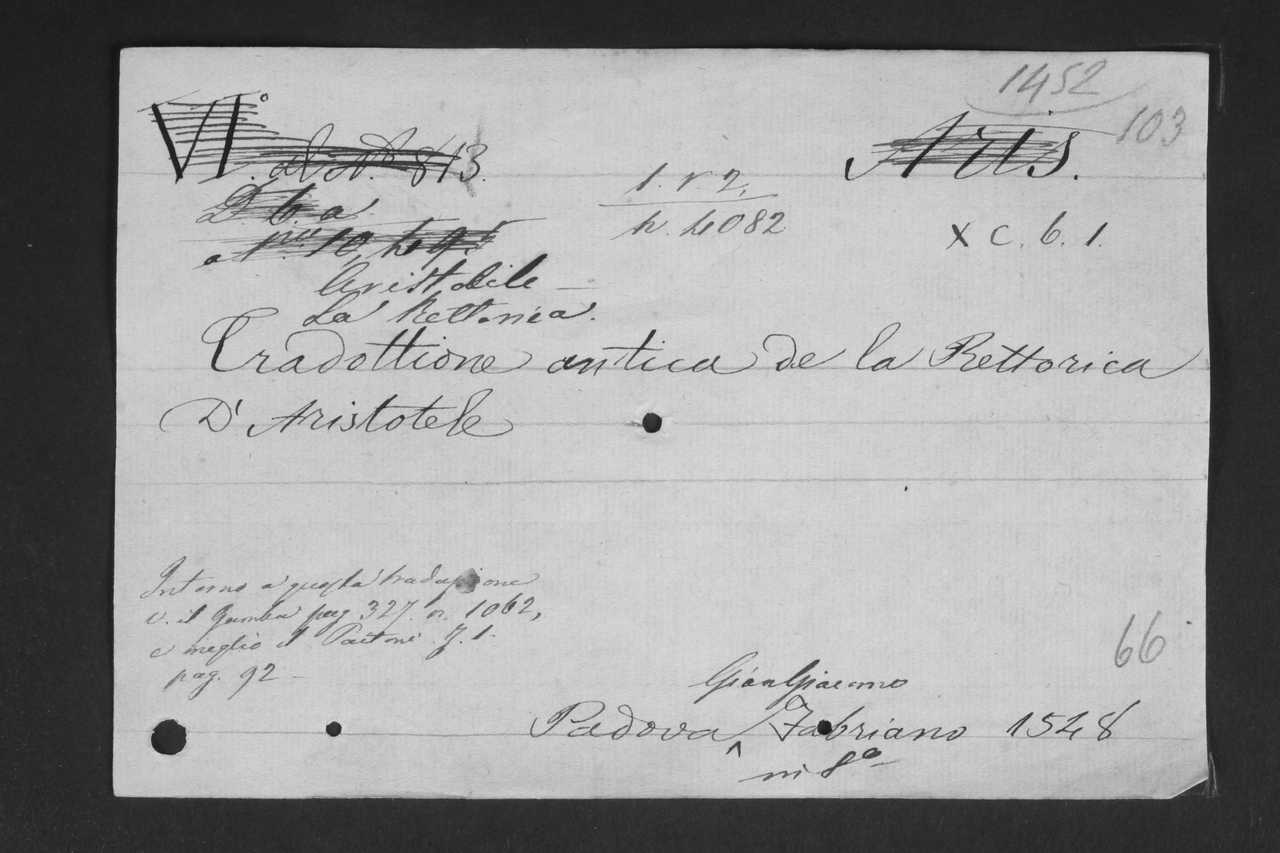 1452
103
VI.° al N.° 813.
Aris.
D. 6. a
1. r 2.
n. 4082
X C. 6. 1.
Aristotile —
La Rettorica.
Tradottione antica de la Rettorica
D' Aristotele
Intorno a questa traduzione
v. il Gamba pag 327. n. 1062,
e meglio il Paitoni T. 1.
pag. 92 —
66
GianGiacomo
Padova ^ Fabriano 1548
in 8°